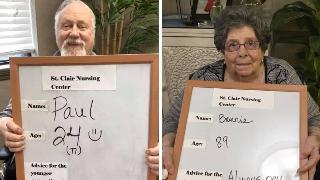 St. Clair Nursing
Center
Name:
Paul
Age:
24
Advice for the
younger
St. Clair Nursing
Center
Name:
Bonnie
Age:
89
Advice for the
Always